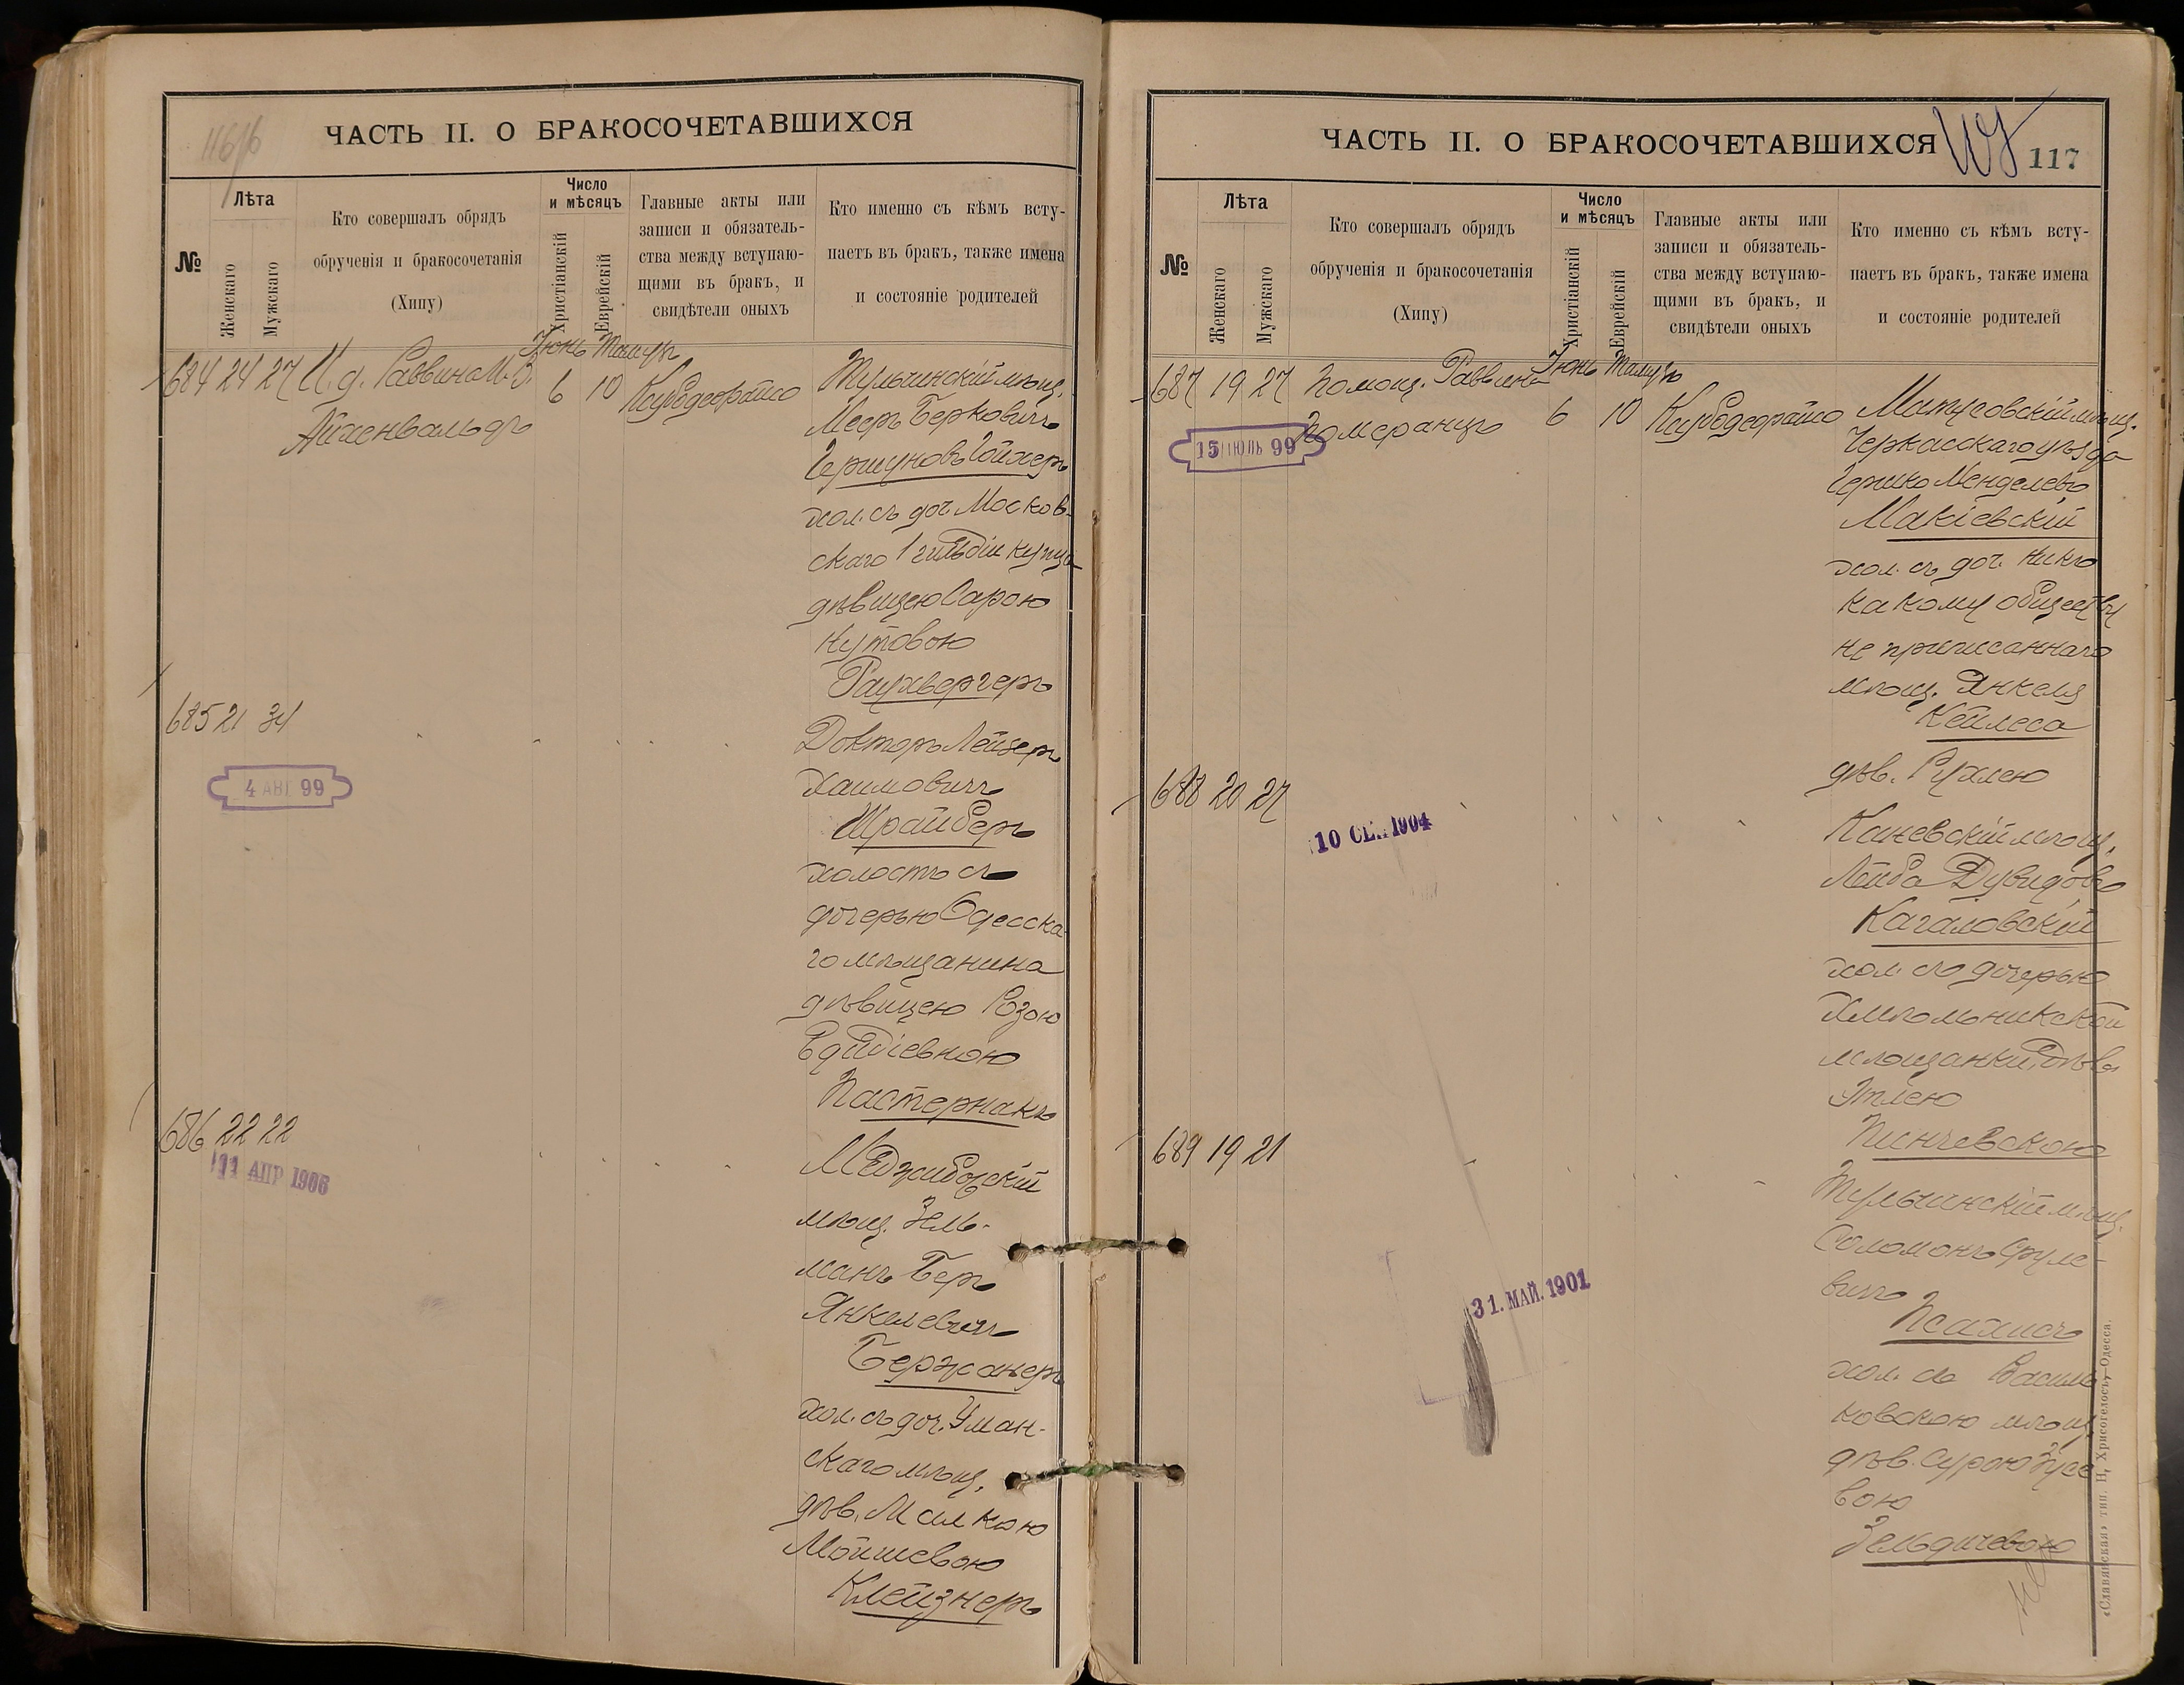 116/б
ЧАСТЬ II. О БРАКОСОЧЕТАВШИХСЯ
№
Лѣта
Женскаго
Мужскаго
Кто совершалъ обрядъ
обрученія и бракосочетанія
(Хипу)
Число
и мѣсяцъ
Христіанскій
Еврейскій
Главные акты или
записи и обязатель-
ства между вступаю-
щими въ бракъ, и
свидѣтели оныхъ
Кто именно съ кѣмъ всту-
паетъ въ бракъ, также имена
и состояніе родителей
Іюнь Тамузъ
684 24 27 И. д. Раввина
Айхенвальдъ
6 10
Тульчинскій мѣщ.
Мееръ Берковичъ
Гершуновъ Гойхеръ
хол. съ доч. Москов-
скаго 1 гильдіи купца
дѣвицею Сарою
Нутовою
Раухвергеръ
685 21 34
4 АВГ 99
Докторъ Лейзеръ
Хаимовичъ
Шрайберъ
холостъ съ
дочерью Одесска-
го мѣщанина
дѣвицею Розою
Пастернакъ
686 22 22
11 АПР 1906
Меджибожскій
мѣщ. Зель-
манъ Беръ
Янкелевичъ
Бержанеръ
хол. съ доч. Уман-
скаго мѣщ.
дѣв. Малкою
Мойшевою
Клейзнеръ
ЧАСТЬ II. О БРАКОСОЧЕТАВШИХСЯ
117
№
Лѣта
Женскаго
Мужскаго
Кто совершалъ обрядъ
обрученія и бракосочетанія
(Хипу)
Число
и мѣсяцъ
Христіанскій
Еврейскій
Главные акты или
записи и обязатель-
ства между вступаю-
щими въ бракъ, и
свидѣтели оныхъ
Кто именно съ кѣмъ всту-
паетъ въ бракъ, также имена
и состояніе родителей
Іюнь Тамузъ
687 19 27 Помощ. Раввина
Померанцъ
6 10
15 ІЮЛЬ 99
Матусовскій мѣщ.
Черкасскаго уѣзда
Гершко Менделевъ
Макіевскій
хол. съ доч. ни къ
какому обществу
не приписаннаго
мѣщ. Янкеля
Кейлеса
дѣв. Рухлею
688 20 27
10 СЕН 1904
Каневскій мѣщ.
Лейба Дувидовъ
Кагаловскій
хол. съ дочерью
Хмѣльникской
мѣщанки дѣв.
Этлею
Пинчевскою
689 19 21
31. МАЙ. 1901
Тульчинскій мѣщ.
Соломонъ Сруле-
вичъ
Псахисъ
хол. съ Василь
ковскою мѣщ.
дѣв. Сурою Зусе
вою
Зельдичевою
«Славянская» тип. Н. Хрисогелосъ,—Одесса.